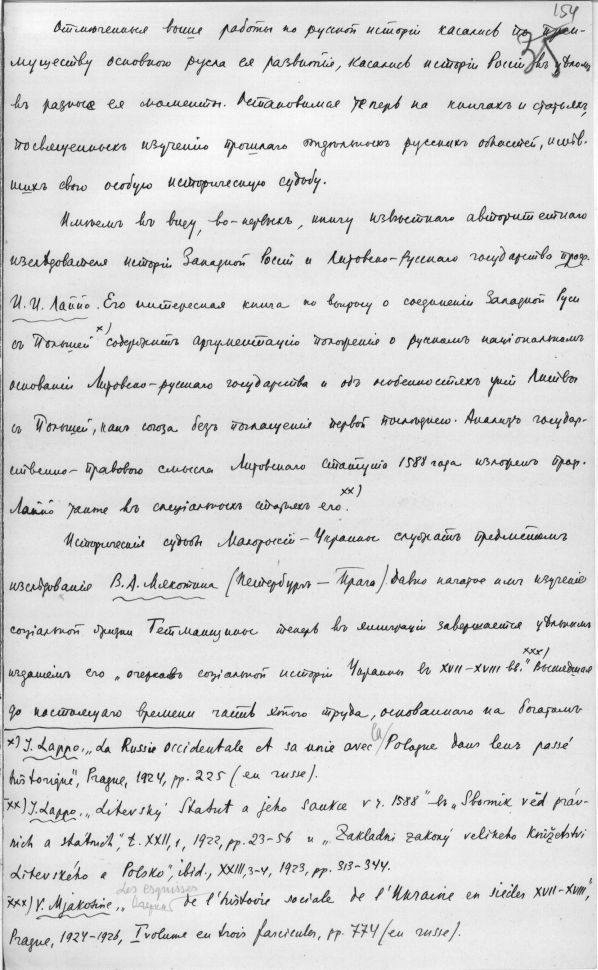 154
35
Отмѣченныя выше работы по русской исторіи касались по преи-
муществу основного русла ея развитія, касались исторіи Россіи въ цѣломъ
въ разные ея моменты. Остановимся теперь на книгахъ и статьяхъ,
посвященныхъ изученію прошлаго отдѣльныхъ русскихъ областей, имѣв-
шихъ свою особую историческую судьбу.
Имѣемъ въ виду, во-первыхъ, книгу извѣстнаго авторитетнаго
изслѣдователя исторіи Западной Россіи и Литовско-Русскаго государства проф.
И. И. Лаппо. Его интересная книга по вопросу о соединеніи Западной Руси
съ Польшей x) содержитъ аргументацію положенія о русскомъ національномъ
основаніи Литовско-русскаго государства и объ особенностяхъ уніи Литвы
съ Польшей, какъ союза безъ поглощенія первой послѣднею. Анализъ государ-
ственно-правового смысла Литовскаго статута 1588 года изложенъ проф.
Лаппо также въ спеціальныхъ статьяхъ его. xx)
Историческія судьбы Малороссіи-Украины служатъ предметомъ
изслѣдованія В. А. Мякотина (Петербургъ — Прага) Давно начатое имъ изученіе
соціальной жизни Гетманщины теперь въ эмиграціи завершается цѣльнымъ
изданіемъ его „очерковъ соціальной исторіи Украины въ XVII-XVIII вв." xxx) Вышедшая
до настоящаго времени часть этого труда, основаннаго на богатомъ
x) J. Lappo, „La Russie occidentale et sa unie avec la Pologne dans leur passé
historique", Prague, 1924, pp. 225 (en russe).
xx) J. Lappo, „Litevský Statut a jeho sankce v r. 1588" въ „Sborník věd práv-
ních a státních", t. XXII, 1, 1922, pp. 23-56 и „Zakladni zakoný velikeho Knížetství
Litevského a Polsko", ibid., XXIII, 3-4, 1923, pp. 313-344.
Les esquisses
xxx) V. Mjakotine, „ de l'histoire sociale de l'Ukraine en siecles XVII-XVIII",
Prague, 1924-1926, I volume en trois fascicules, pp. 774 (en russe).